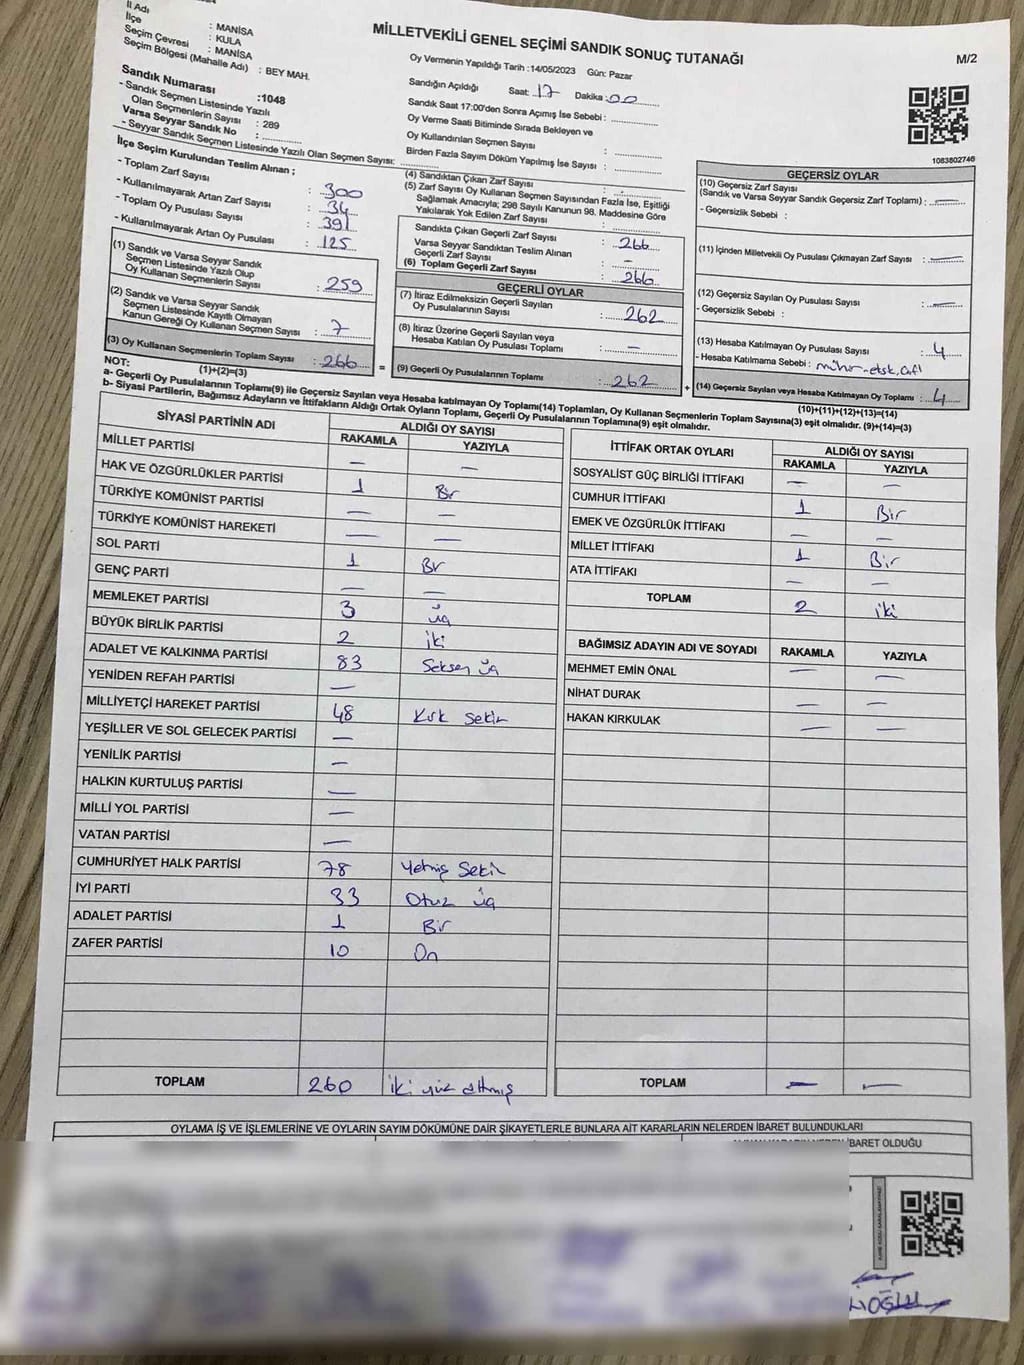 İl Adı : MANİSA
İlçe : KULA
Seçim Çevresi : MANİSA
Seçim Bölgesi (Mahalle Adı) : BEY MAH.
Sandık Numarası :1048
- Sandık Seçmen Listesinde Yazılı
Olan Seçmenlerin Sayısı : 289
Varsa Seyyar Sandık No :
- Seyyar Sandık Seçmen Listesinde Yazılı Olan Seçmen Sayısı:
MİLLETVEKİLİ GENEL SEÇİMİ SANDIK SONUÇ TUTANAĞI
M/2
Oy Vermenin Yapıldığı Tarih :14/05/2023 Gün: Pazar
Sandığın Açıldığı Saat: 17 Dakika :00
Sandık Saat 17:00'den Sonra Açımış İse Sebebi :
Oy Verme Saati Bitiminde Sırada Bekleyen ve
Oy Kullandırılan Seçmen Sayısı :
Birden Fazla Sayım Döküm Yapılmış İse Sayısı :
1083802746
İlçe Seçim Kurulundan Teslim Alınan ;
- Toplam Zarf Sayısı : 300
- Kullanılmayarak Artan Zarf Sayısı : 34
- Toplam Oy Pusulası Sayısı : 391
- Kullanılmayarak Artan Oy Pusulası : 125
(1) Sandık ve Varsa Seyyar Sandık
Seçmen Listesinde Yazılı Olup
Oy Kullanan Seçmenlerin Sayısı : 259
(2) Sandık ve Varsa Seyyar Sandık
Seçmen Listesinde Kayıtlı Olmayan
Kanun Gereği Oy Kullanan Seçmen Sayısı : 7
(3) Oy Kullanan Seçmenlerin Toplam Sayısı : 266
(1)+(2)=(3)
(4) Sandıktan Çıkan Zarf Sayısı :
(5) Zarf Sayısı Oy Kullanan Seçmen Sayısından Fazla İse, Eşitliği
Sağlamak Amacıyla; 298 Sayılı Kanunun 98. Maddesine Göre
Yakılarak Yok Edilen Zarf Sayısı :
Sandıkta Çıkan Geçerli Zarf Sayısı : 266
Varsa Seyyar Sandıktan Teslim Alınan
Geçerli Zarf Sayısı : –
(6) Toplam Geçerli Zarf Sayısı : 266
GEÇERLİ OYLAR
(7) İtiraz Edilmeksizin Geçerli Sayılan
Oy Pusulalarının Sayısı : 262
(8) İtiraz Üzerine Geçerli Sayılan veya
Hesaba Katılan Oy Pusulası Toplamı : –
= (9) Geçerli Oy Pusulalarının Toplamı : 262 +
GEÇERSİZ OYLAR
(10) Geçersiz Zarf Sayısı
(Sandık ve Varsa Seyyar Sandık Geçersiz Zarf Toplamı) : –
- Geçersizlik Sebebi :
(11) İçinden Milletvekili Oy Pusulası Çıkmayan Zarf Sayısı : –
(12) Geçersiz Sayılan Oy Pusulası Sayısı : –
- Geçersizlik Sebebi :
(13) Hesaba Katılmayan Oy Pusulası Sayısı : 4
- Hesaba Katılmama Sebebi :
(14) Geçersiz Sayılan veya Hesaba Katılmayan Oy Toplamı : 4
(10)+(11)+(12)+(13)=(14)
NOT:
a- Geçerli Oy Pusulalarının Toplamı(9) ile Geçersiz Sayılan veya Hesaba katılmayan Oy Toplamı(14) Toplamları, Oy Kullanan Seçmenlerin Toplam Sayısına(3) eşit olmalıdır. (9)+(14)=(3)
b- Siyasi Partilerin, Bağımsız Adayların ve İttifakların Aldığı Ortak Oyların Toplamı, Geçerli Oy Pusulalarının Toplamına(9) eşit olmalıdır.
SİYASİ PARTİNİN ADI ALDIĞI OY SAYISI
RAKAMLA YAZIYLA
MİLLET PARTİSİ – –
HAK VE ÖZGÜRLÜKLER PARTİSİ 1 Bir
TÜRKİYE KOMÜNİST PARTİSİ – –
TÜRKİYE KOMÜNİST HAREKETİ – –
SOL PARTİ 1 Bir
GENÇ PARTİ – –
MEMLEKET PARTİSİ 3 üç
BÜYÜK BİRLİK PARTİSİ 2 iki
ADALET VE KALKINMA PARTİSİ 83 Seksen üç
YENİDEN REFAH PARTİSİ –
MİLLİYETÇİ HAREKET PARTİSİ 48 Kırk Sekiz
YEŞİLLER VE SOL GELECEK PARTİSİ –
YENİLİK PARTİSİ –
HALKIN KURTULUŞ PARTİSİ –
MİLLİ YOL PARTİSİ –
VATAN PARTİSİ –
CUMHURİYET HALK PARTİSİ 78 Yetmiş Sekiz
İYİ PARTİ 33 Otuz üç
ADALET PARTİSİ 1 Bir
ZAFER PARTİSİ 10 On
TOPLAM 260 iki yüz altmış
İTTİFAK ORTAK OYLARI ALDIĞI OY SAYISI
RAKAMLA YAZIYLA
SOSYALİST GÜÇ BİRLİĞİ İTTİFAKI – –
CUMHUR İTTİFAKI 1 Bir
EMEK VE ÖZGÜRLÜK İTTİFAKI – –
MİLLET İTTİFAKI 1 Bir
ATA İTTİFAKI – –
TOPLAM 2 iki
BAĞIMSIZ ADAYIN ADI VE SOYADI RAKAMLA YAZIYLA
MEHMET EMİN ÖNAL – –
NİHAT DURAK – –
HAKAN KIRKULAK – –
TOPLAM – –
OYLAMA İŞ VE İŞLEMLERİNE VE OYLARIN SAYIM DÖKÜMÜNE DAİR ŞİKAYETLERLE BUNLARA AİT KARARLARIN NELERDEN İBARET BULUNDUKLARI
İBARET OLDUĞU